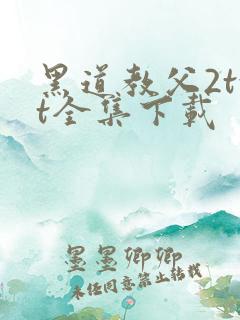 黑道教父2tx
t全集下载
墨墨卿卿
未经同意禁止转载